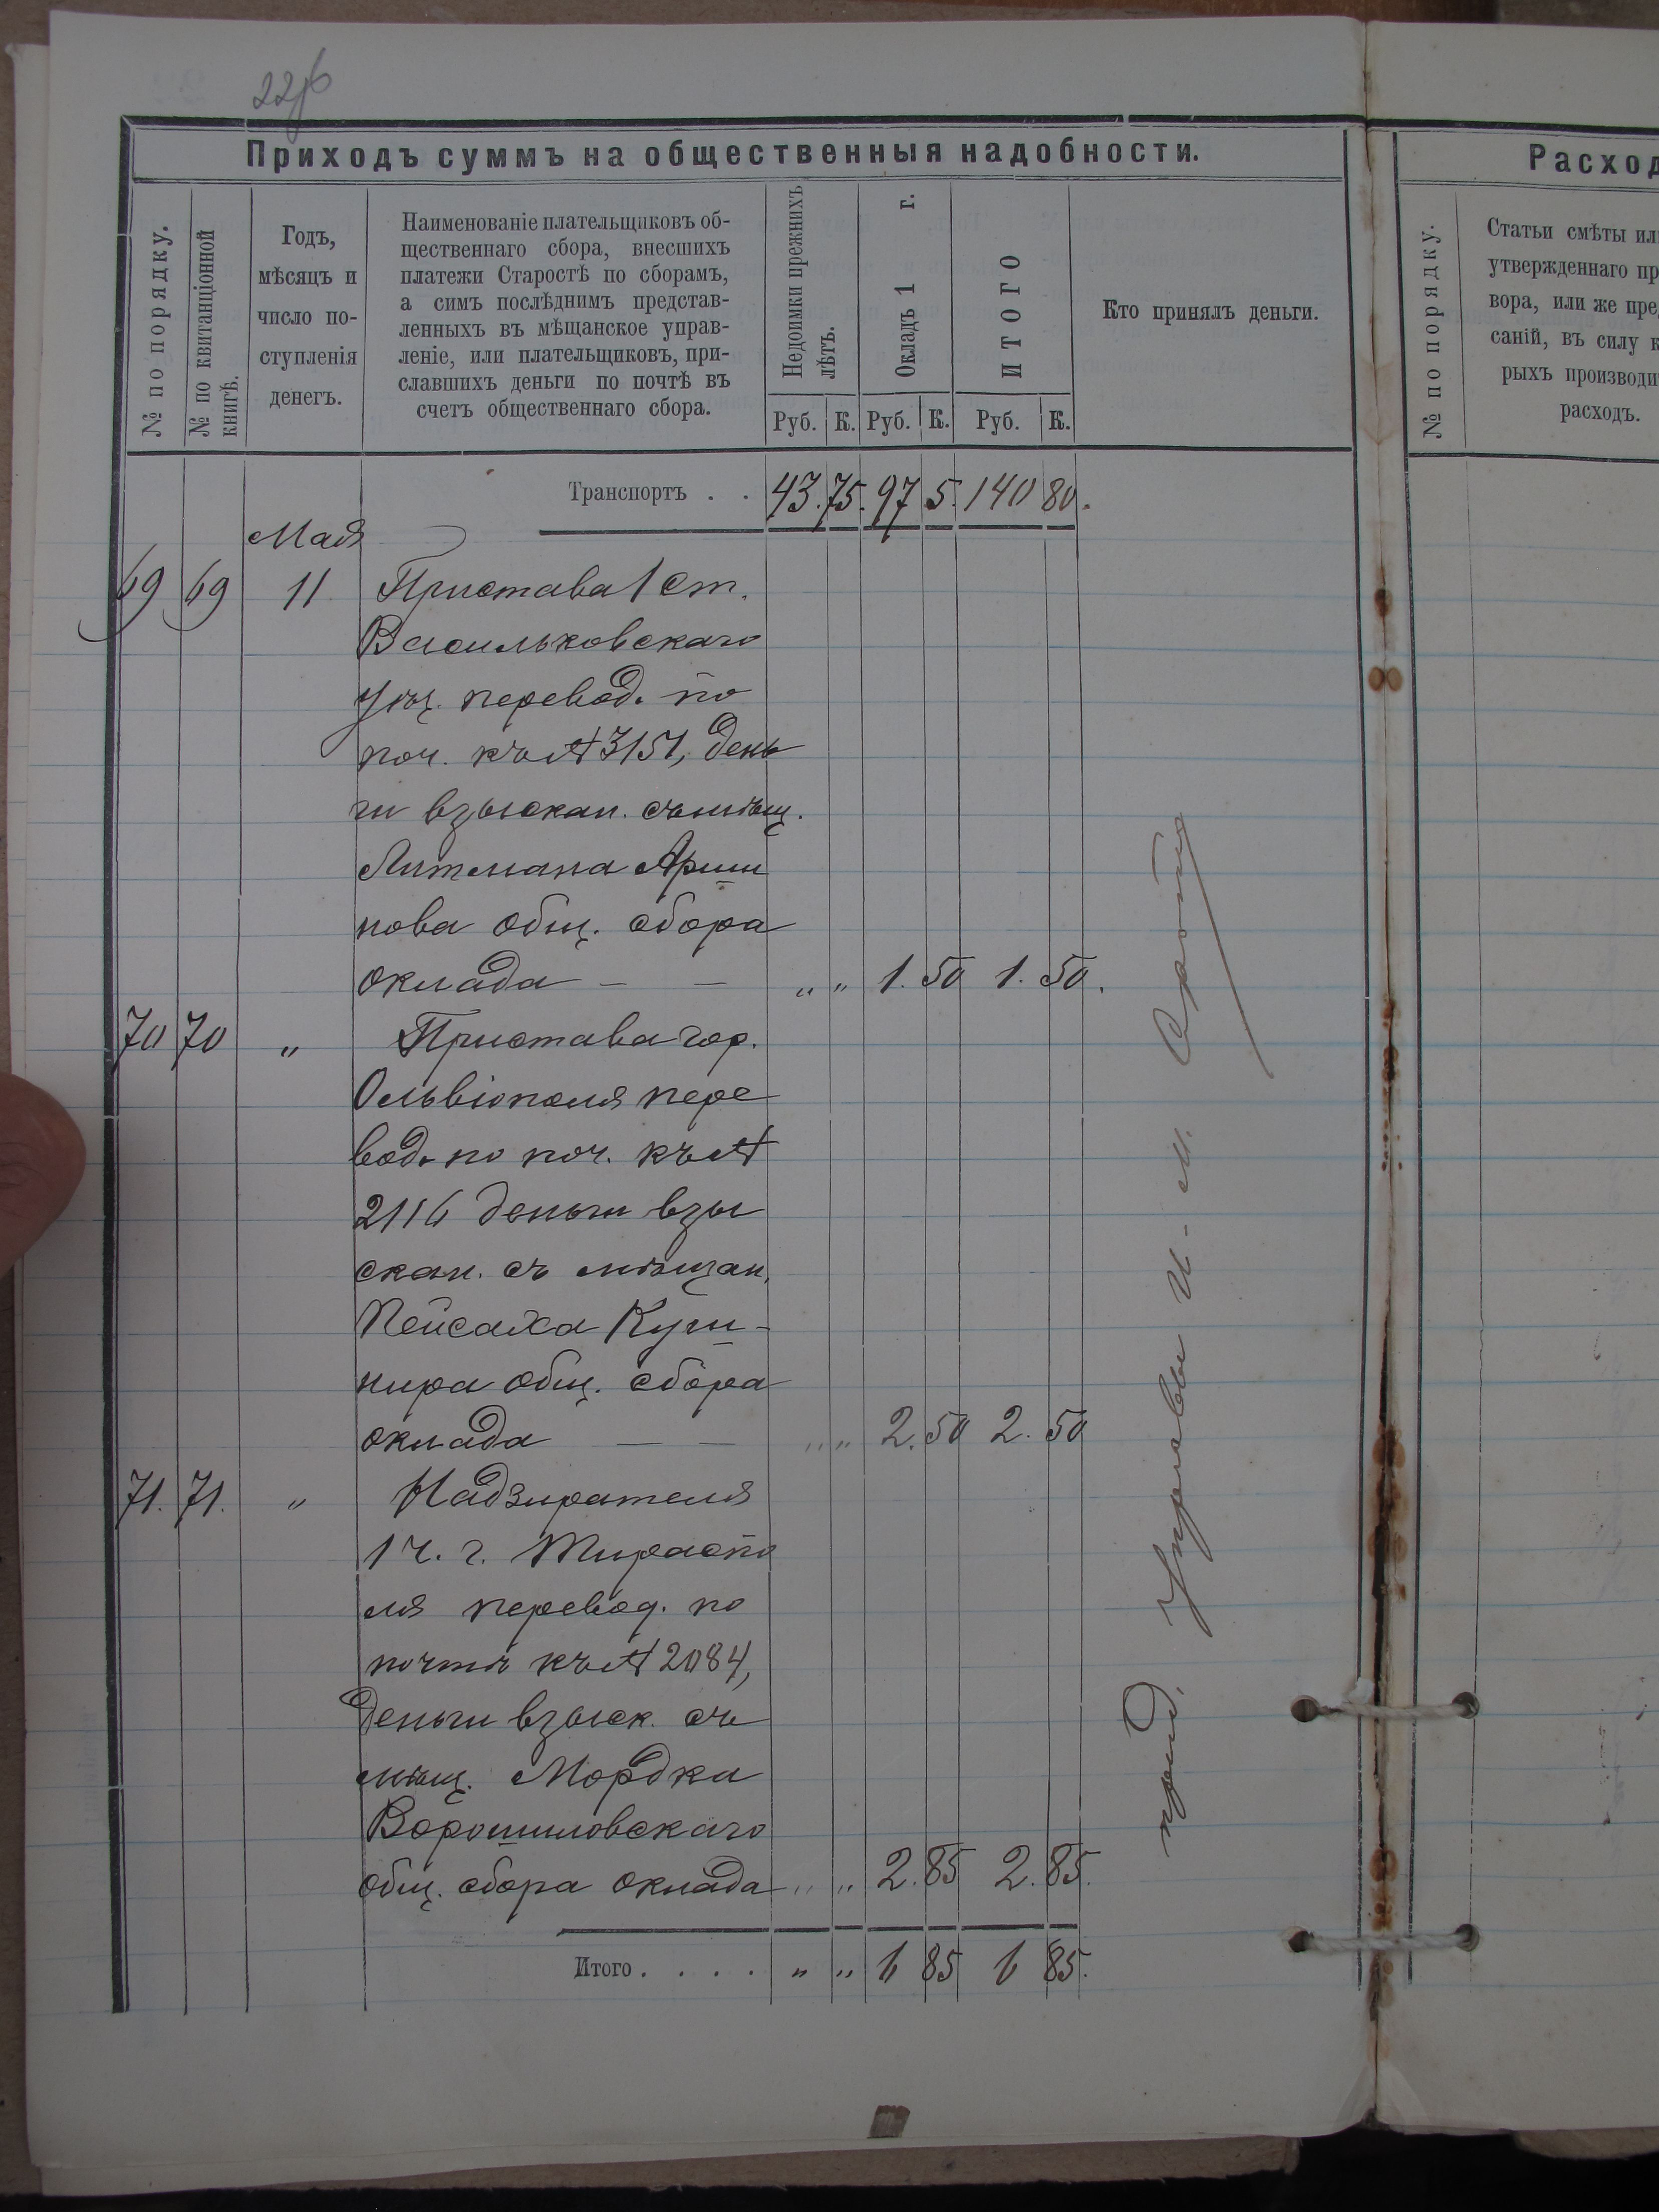 Приходъ суммъ на общественныя надобности.
Расход
№ по порядку.
№ по квитанціонной книгѣ.
Годъ,
мѣсяцъ и
число по-
ступленія
денегъ.
Наименованіе плательщиковъ об-
щественнаго сбора, внесшихъ
платежи Старостѣ по сборамъ,
а симъ послѣднимъ представ-
ленныхъ въ мѣщанское управ-
леніе, или плательщиковъ, при-
славшихъ деньги по почтѣ въ
счетъ общественнаго сбора.
Недоимки прежнихъ лѣтъ.
Окладъ 1 г.
ИТОГО
Руб. К. Руб. К. Руб. К.
Кто принялъ деньги.
№ по порядку.
Статьи смѣты ил
утвержденнаго пр
вора, или же пре
саній, въ силу к
рыхъ производи
расходъ.
Транспортъ . . 43. 75. 97 5. 140 80.
Мая
69 69 11 Пристава 1 ст.
Васильковскаго
уѣз. перевод. по
поч. къ № 3151, день
ги взыскан. съ мѣщ.
Литмана Арши
нова общ. сбора
оклада — — „ „ 1. 50 1. 50.
70 70 „ Пристава гор.
Ольвіополя пере
вод. по поч. къ №
2116 деньги взы
скан. съ мѣщан.
Пейсаха Куш-
нира общ. сбора
оклада — — „ „ 2. 50 2. 50
71. 71. „ Надзирателя
1 ч. г. Тираспо
ля перевод. по
почтѣ къ № 2084,
деньги взыск. съ
мѣщ. Мордка
Ворошиловскаго
общ. сбора оклада „ „ 2. 85 2. 85.
Итого . . . . „ „ 6 85 6 85.
Управы И. М.